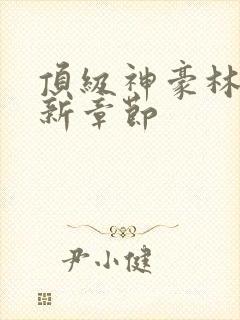 頂級神豪林
新章節
尹小健